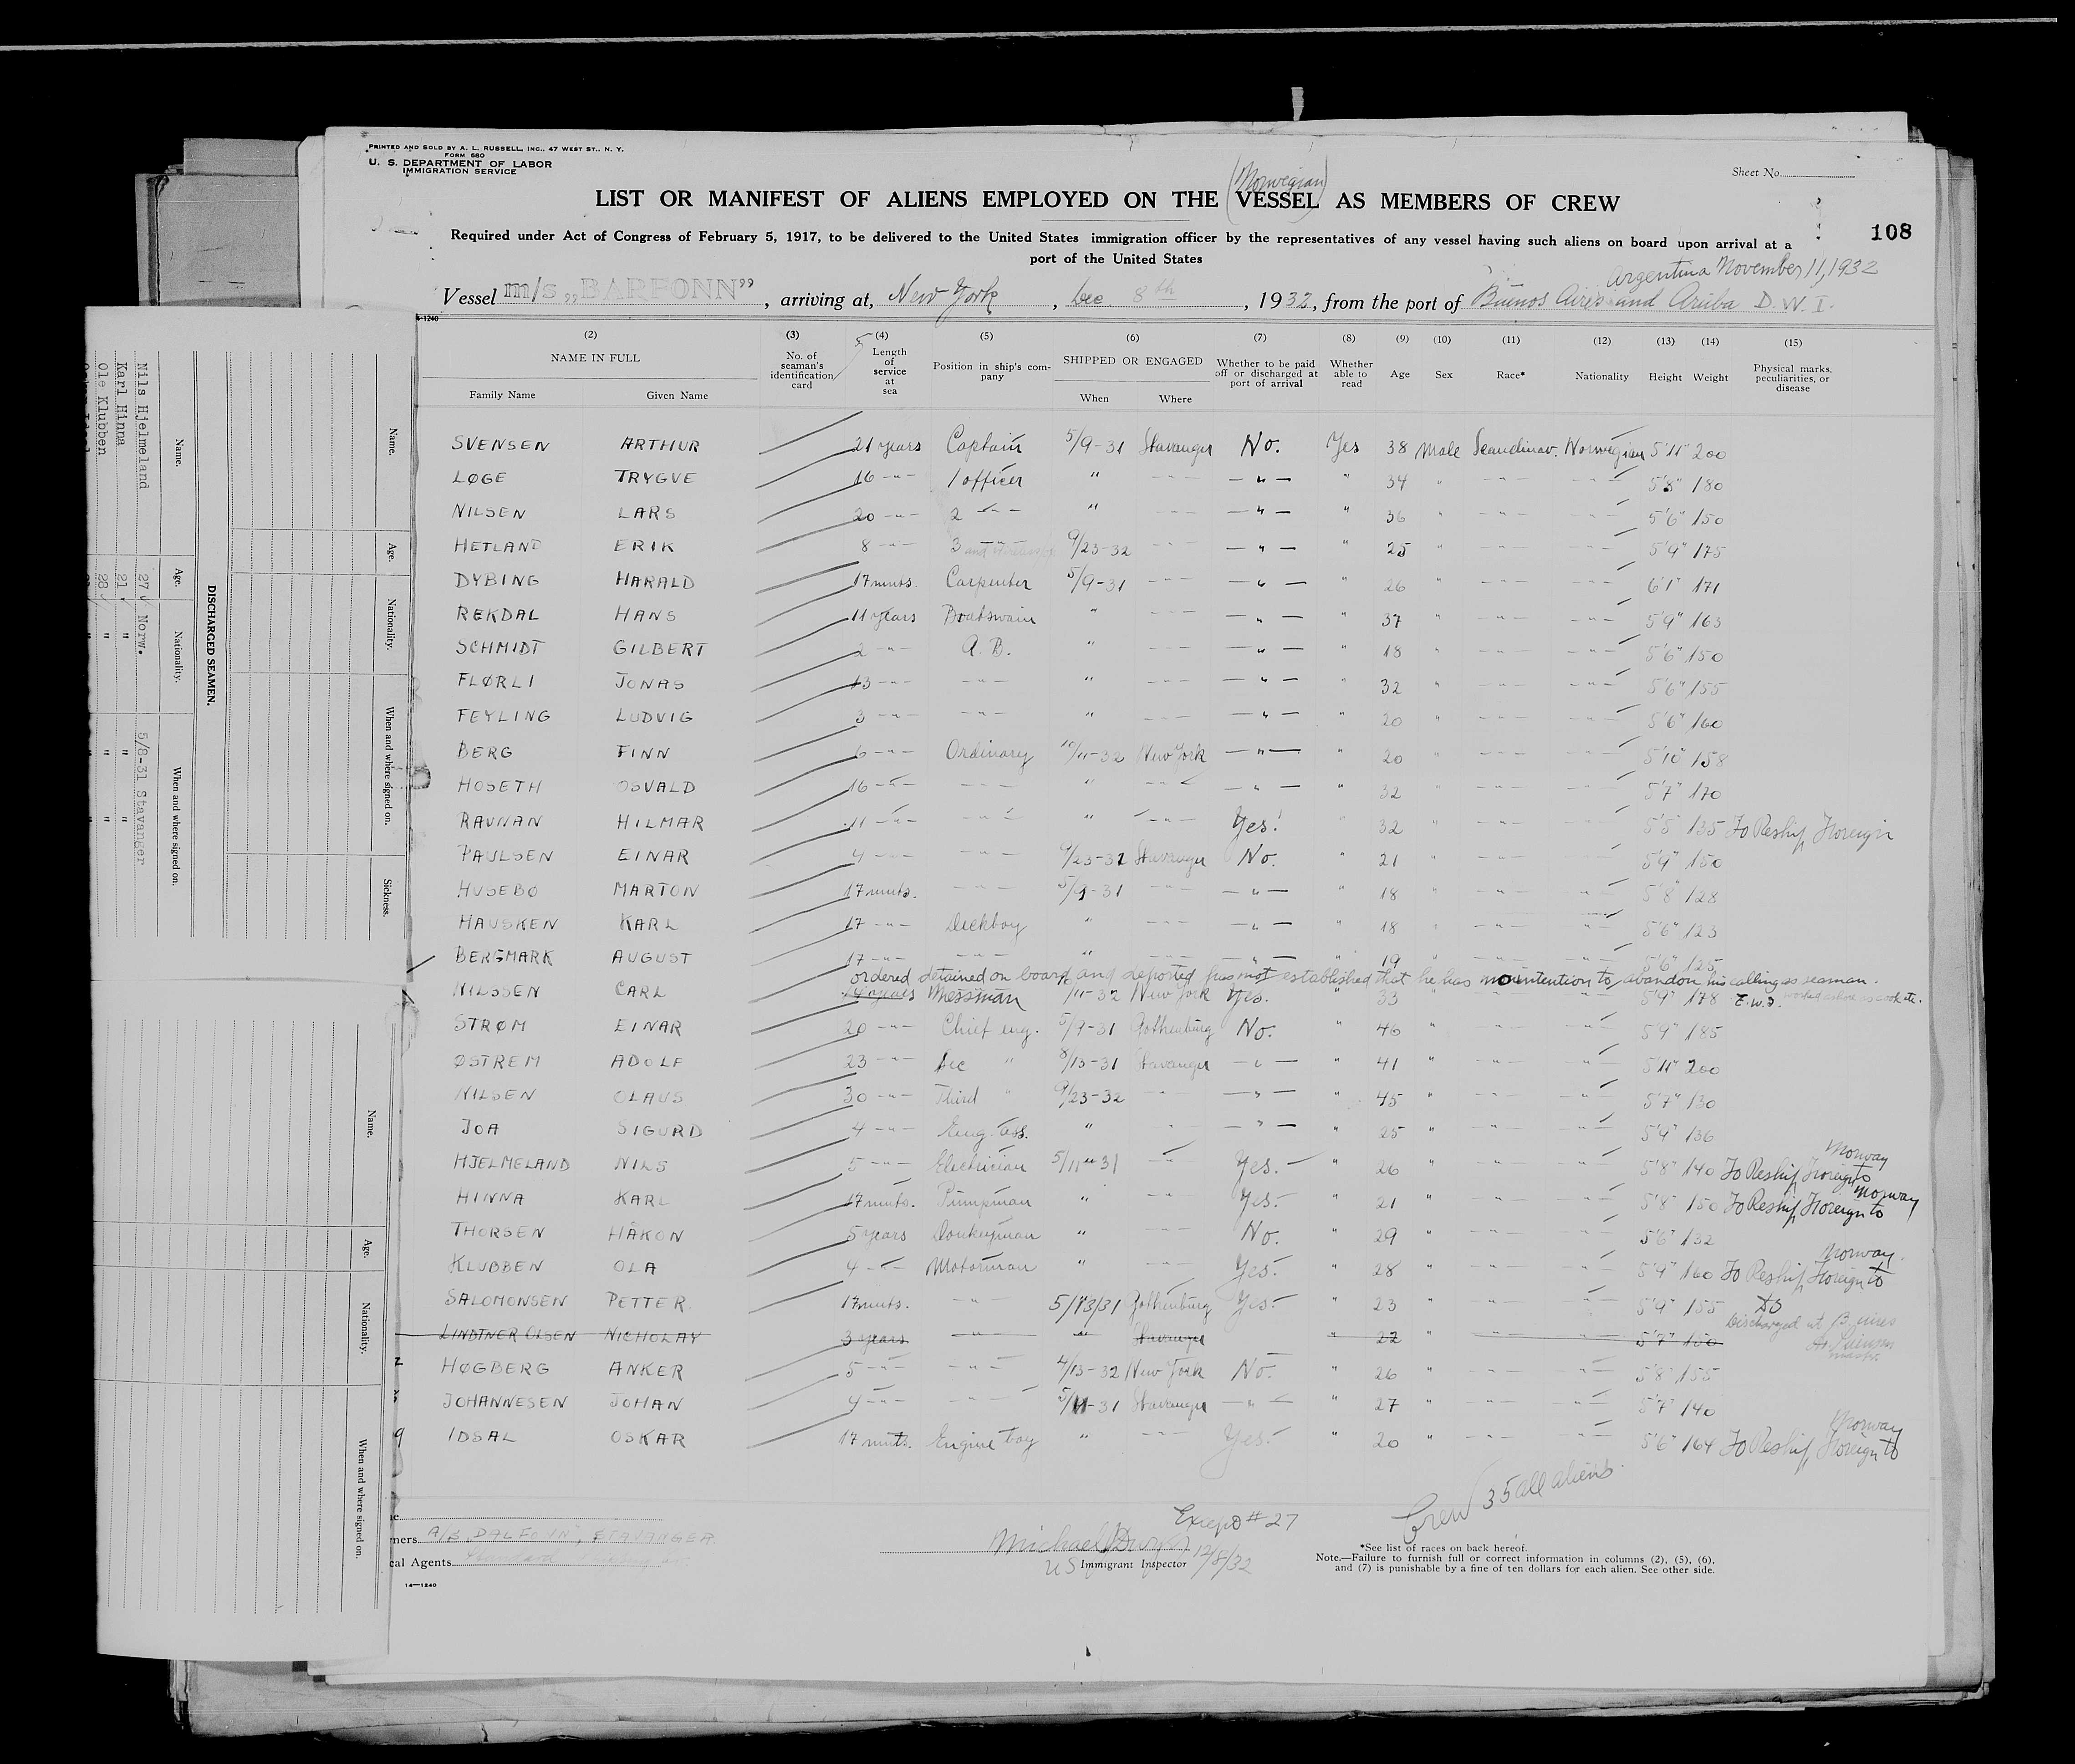 PRINTED AND SOLD BY A. L. RUSSELL, INC., 47 WEST ST., N. Y.
FORM 680
U. S. DEPARTMENT OF LABOR
IMMIGRATION SERVICE
Sheet No.
(Norwegian)
LIST OR MANIFEST OF ALIENS EMPLOYED ON THE VESSEL AS MEMBERS OF CREW
108
Required under Act of Congress of February 5, 1917, to be delivered to the United States immigration officer by the representatives of any vessel having such aliens on board upon arrival at a
port of the United States
Argentina November 11, 1932
Vessel m/s „BARFONN”, arriving at, New York, Dec 8th, 1932, from the port of Buenos Aires and Aruba D.W.I.
4-1240
(2) (3) (4) (5) (6) (7) (8) (9) (10) (11) (12) (13) (14) (15)
NAME IN FULL
Family Name Given Name
No. of seaman's identification card
Length of service at sea
Position in ship's company
SHIPPED OR ENGAGED
When Where
Whether to be paid off or discharged at port of arrival
Whether able to read
Age
Sex
Race*
Nationality
Height
Weight
Physical marks, peculiarities, or disease
SVENSEN ARTHUR 21 years Captain 5/9-31 Stavanger No. Yes 38 Male Scandinav. Norwegian 5'11" 200
LØGE TRYGVE 16 -"- 1 officer " -"- -"- " 34 " -"- -"- 5'8" 180
NILSEN LARS 20 -"- 2 -"- " -"- -"- " 36 " -"- -"- 5'6" 150
HETLAND ERIK 8 -"- 3 -"- 9/23-32 -"- -"- " 25 " -"- -"- 5'9" 175
DYBING HARALD 17 mnts. Carpenter 5/9-31 -"- -"- " 26 " -"- -"- 6'1" 171
REKDAL HANS 11 years Boatswain " -"- -"- " 37 " -"- -"- 5'9" 163
SCHMIDT GILBERT 2 -"- A.B. " -"- -"- " 18 " -"- -"- 5'6" 150
FLØRLI JONAS 13 -"- -"- " -"- -"- " 32 " -"- -"- 5'6" 155
FEYLING LUDVIG 3 -"- -"- " -"- -"- " 20 " -"- -"- 5'6" 160
BERG FINN 6 -"- Ordinary 10/11-32 New York -"- " 20 " -"- -"- 5'10" 158
HOSETH OSVALD 16 -"- -"- " -"- -"- " 32 " -"- -"- 5'7" 170
RAUNAN HILMAR 11 -"- -"- " -"- Yes. " 32 " -"- -"- 5'5" 135 To Reship Foreign
PAULSEN EINAR 4 -"- -"- 9/23-32 Stavanger No. " 21 " -"- -"- 5'9" 150
HUSEBØ MARTON 17 mnts. -"- 5/9-31 -"- -"- " 18 " -"- -"- 5'8" 128
HAUSKEN KARL 17 -"- Deckboy " -"- -"- " 18 " -"- -"- 5'6" 123
BERGMARK AUGUST 17 -"- -"- " -"- -"- " 19 " -"- -"- 5'6" 125
ordered detained on board and deported has not established that he has no intention to abandon his calling as seaman.
NILSSEN CARL 14 years Messman /11-32 New York Yes. " 33 " -"- -"- 5'9" 178 E.W.I.
STRØM EINAR 20 -"- Chief eng. 5/9-31 Gothenburg No. " 46 " -"- -"- 5'9" 185
ØSTREM ADOLF 23 -"- Sec " 8/13-31 Stavanger -"- " 41 " -"- -"- 5'11" 200
NILSEN OLAUS 30 -"- Third " 9/23-32 -"- -"- " 45 " -"- -"- 5'7" 130
JOA SIGURD 4 -"- Eng. ass. " " -"- " 25 " -"- -"- 5'9" 136
HJELMELAND NILS 5 -"- Electrician 5/11-31 -"- Yes. " 26 " -"- -"- 5'8" 140 To Reship Foreign to Norway
HINNA KARL 17 mnts. Pumpman " -"- Yes. " 21 " -"- -"- 5'8" 150 To Reship Foreign to Norway
THORSEN HÅKON 5 years Donkeyman " -"- No. " 29 " -"- -"- 5'6" 132
KLUBBEN OLA 4 -"- Motorman " -"- Yes. " 28 " -"- -"- 5'9" 160 To Reship Foreign to Norway
SALOMONSEN PETTER 17 mnts. -"- 5/13/31 Gothenburg Yes. " 23 " -"- -"- 5'9" 155 Do
LINDTNER OLSEN NICHOLAY 3 years -"- " Stavanger " 22 " -"- -"- 5'7" 150 Discharged at B. aires
HØGBERG ANKER 5 -"- -"- 4/13-32 New York No. " 26 " -"- -"- 5'8" 155
JOHANNESEN JOHAN 4 -"- -"- 5/11-31 Stavanger -"- " 27 " -"- -"- 5'7" 140
IDSAL OSKAR 17 mnts. Engine boy " -"- Yes. " 20 " -"- -"- 5'6" 164 To Reship Foreign to Norway
Crew 35 all aliens
Except #27
ners A/S "DALFONN", STAVANGER
cal Agents Standard
U S Immigrant Inspector 12/8/32
*See list of races on back hereof.
Note.—Failure to furnish full or correct information in columns (2), (5), (6),
and (7) is punishable by a fine of ten dollars for each alien. See other side.
14—1240
Name. Age. Nationality. When and where signed on. Sickness.
DISCHARGED SEAMEN.
Name. Age. Nationality. When and where signed on.
Nils Hjelmeland 27 Norw. 5/8-31 Stavanger
Karl Hinna 21 " " "
Ole Klubben 28 " " "
Name. Age. Nationality. When and where signed on.